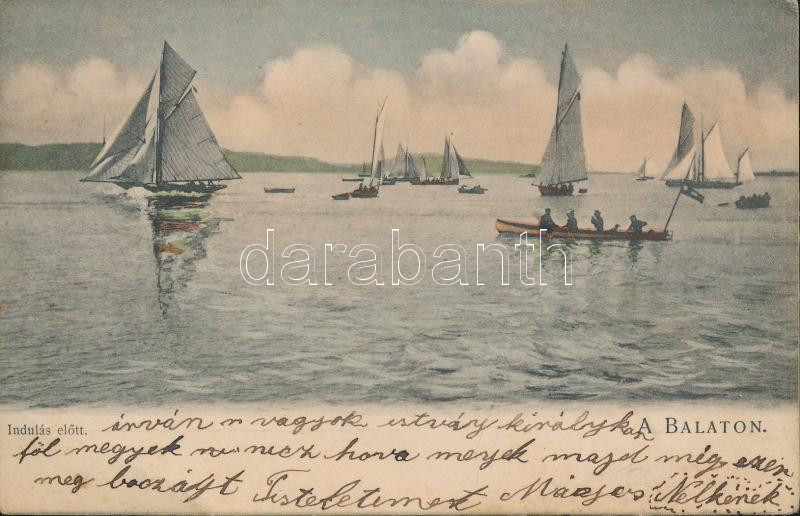 darabanth
Indulás előtt.
A BALATON.
árván n vagyok istváŋ királyk
föl megyek nincz hova merjek majd még ezen
meg boczáyt Tisteletemet Nelkenek